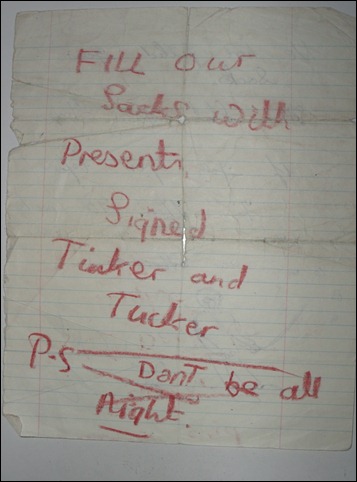 FILL our
Sacks with
Presents
Signed
Tinker and
Tucker
P-S Dont be all
Night.